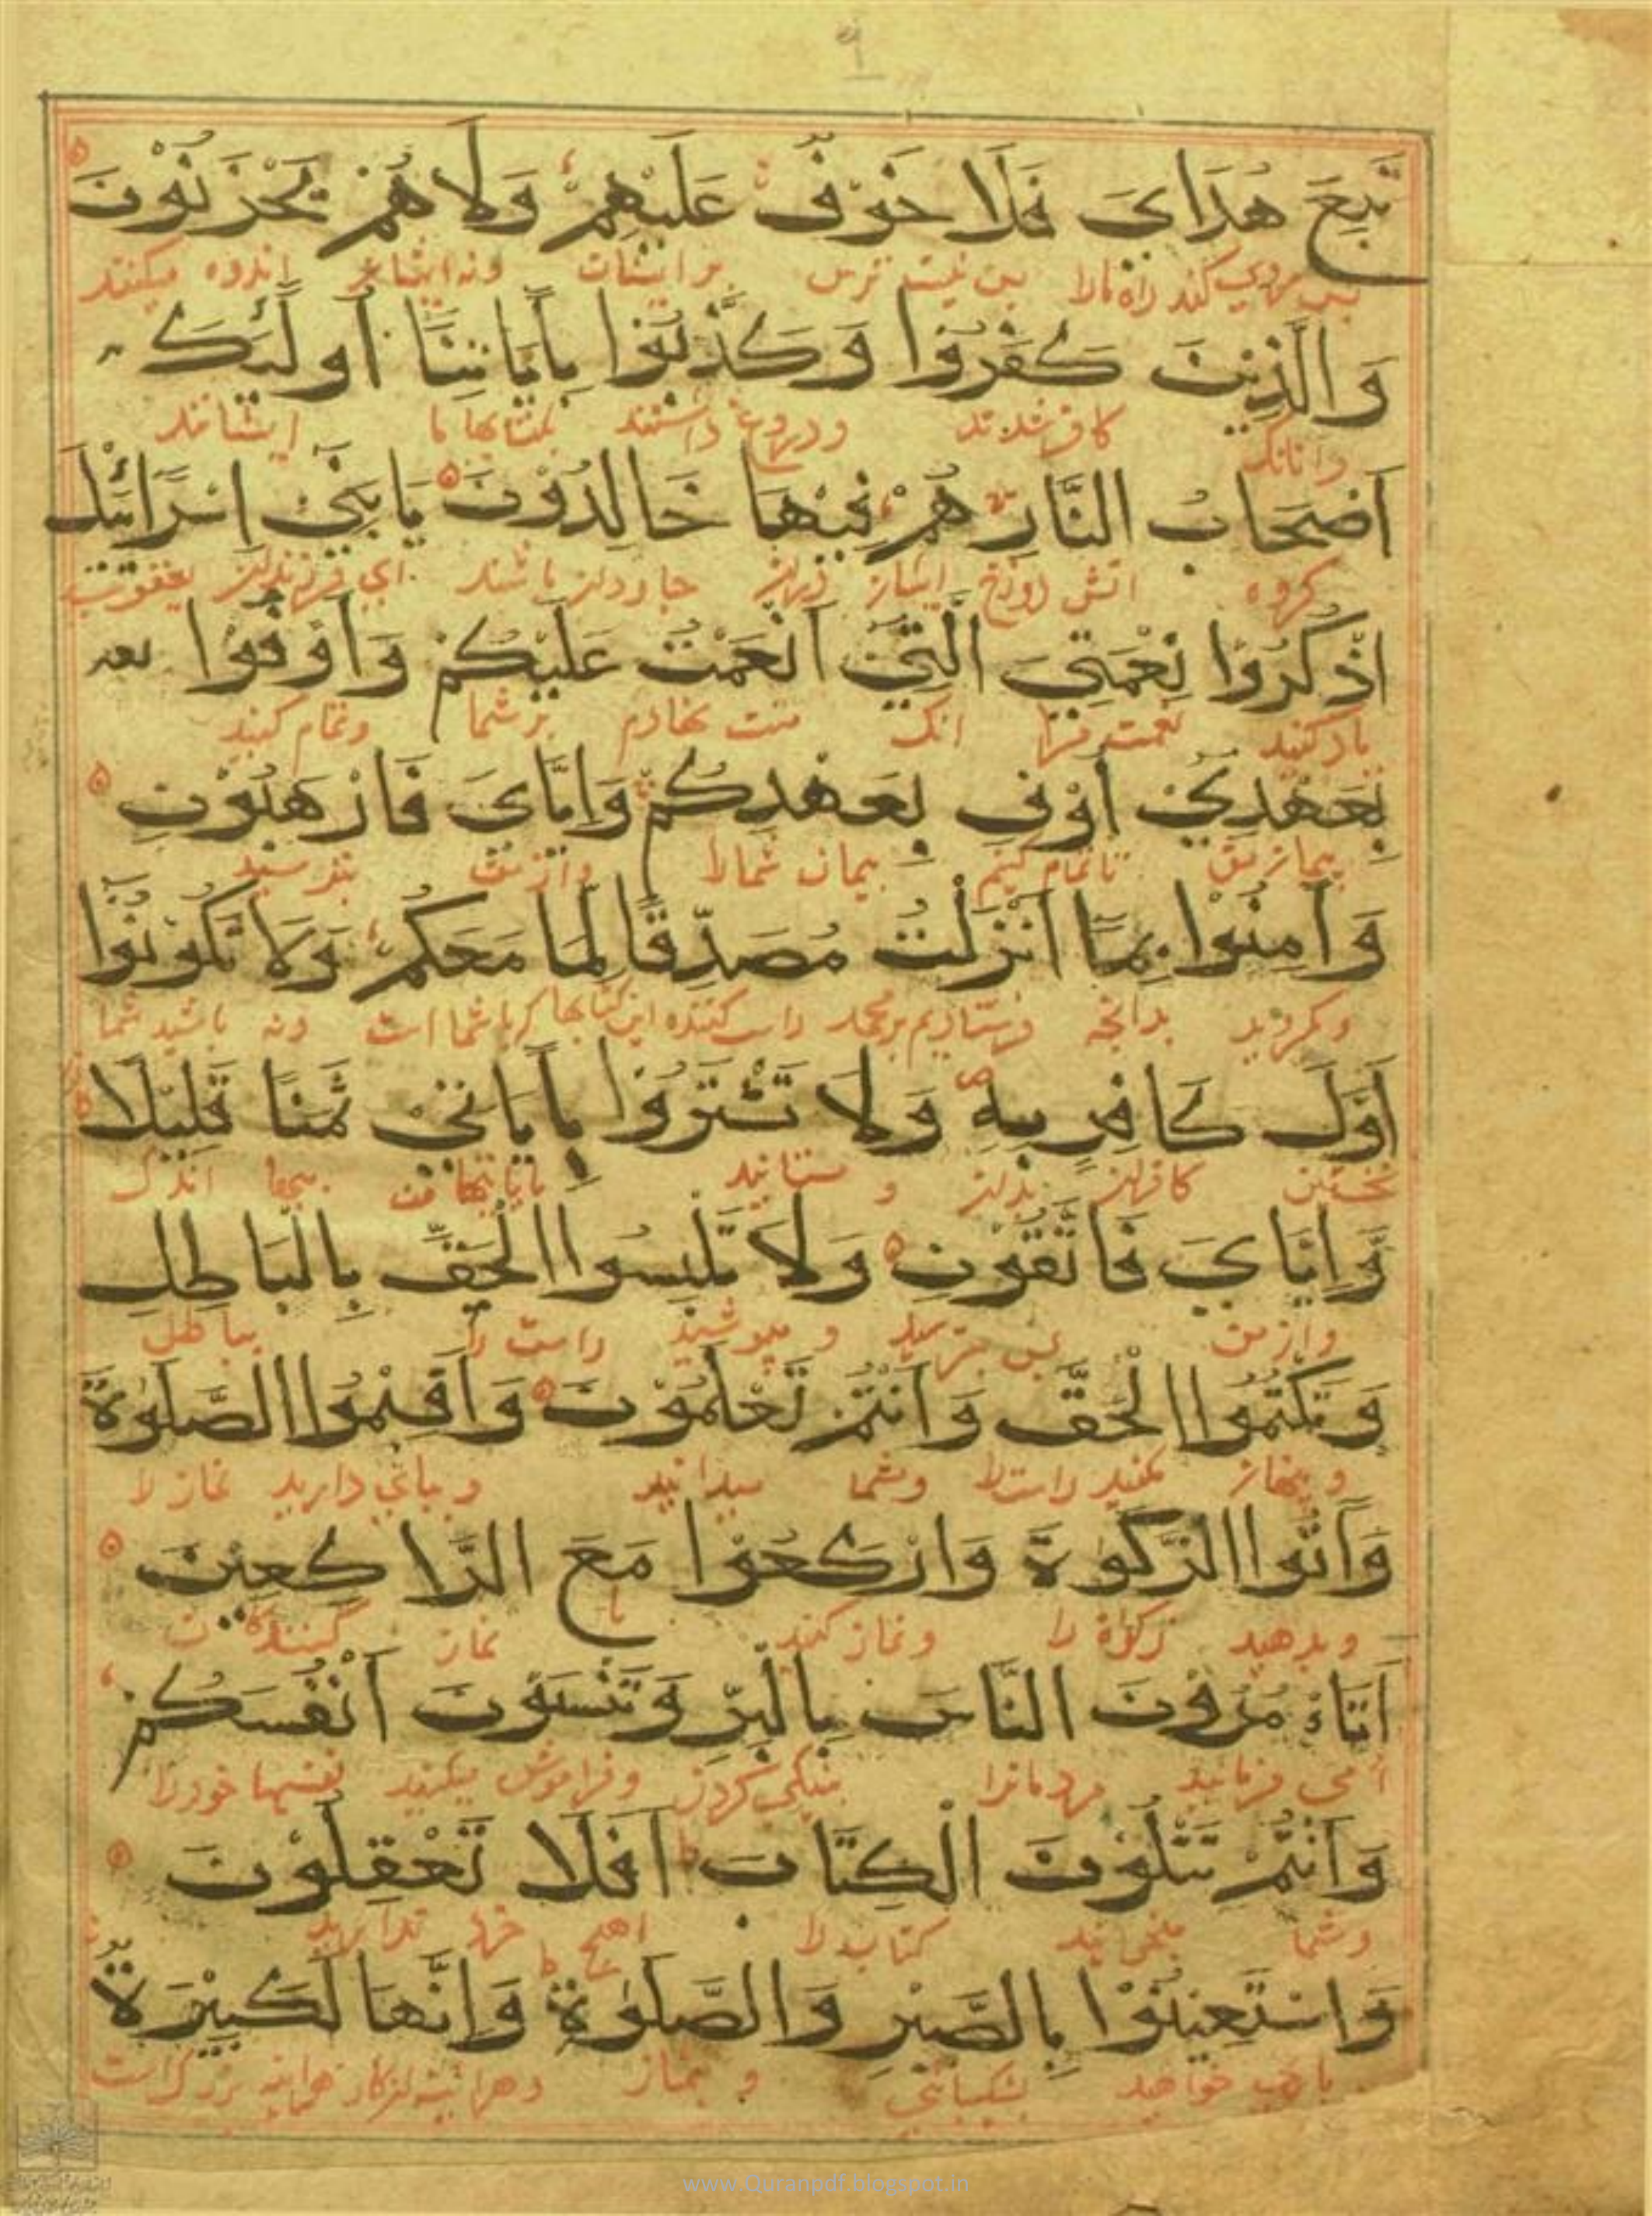 ۹
تَبِعَ هُدَايَ فَلَا خَوْفٌ عَلَيْهِمْ وَلَا هُمْ يَحْزَنُوْنَ
پس نیست ترس بر ایشان ونه ایشان اندوه میکنند
وَالَّذِيْنَ كَفَرُوْا وَكَذَّبُوْا بِاٰيَاتِنَا اُولٰئِكَ
کافر شدند ودروغ داشتند ایشانند
اَصْحَابُ النَّارِ هُمْ فِيْهَا خَالِدُوْنَ يَا بَنِيْ اِسْرَائِيْلَ
کروه اتش دوزخ جاودان باشند ای فرزندان یعقوب
اذْكُرُوْا نِعْمَتِيَ الَّتِيْ اَنْعَمْتُ عَلَيْكُمْ وَاَوْفُوْا بعه
یاد کنید نعمت مرا انک منت نهادم بر شما وتمام کنید
بِعَهْدِيْ اُوْفِ بِعَهْدِكُمْ وَاِيَّايَ فَارْهَبُوْنِ
پیمان من تا تمام کنم پیمان شمارا واز من بترسید
وَاٰمِنُوْا بِمَا اَنْزَلْتُ مُصَدِّقًا لِمَا مَعَكُمْ وَلَا تَكُوْنُوْا
وبکروید بدانچه ونه باشید شما
اَوَّلَ كَافِرٍ بِهِ وَلَا تَشْتَرُوْا بِاٰيَاتِيْ ثَمَنًا قَلِيْلًا
نخستین کافران بدان و مستانید اندک
وَّاِيَّايَ فَاتَّقُوْنِ وَلَا تَلْبِسُوا الْحَقَّ بِالْبَاطِلِ
واز من پس بترسید و مپوشید راست را بباطل
وَتَكْتُمُوا الْحَقَّ وَاَنْتُمْ تَعْلَمُوْنَ وَاَقِيْمُوا الصَّلٰوةَ
مکنید راست را وشما میدانید وبپای دارید نماز را
وَاٰتُوا الزَّكٰوةَ وَارْكَعُوْا مَعَ الرَّاكِعِيْنَ
وبدهید زکوة را ونماز کنید با نماز کنندکان
اَتَاْمُرُوْنَ النَّاسَ بِالْبِرِّ وَتَنْسَوْنَ اَنْفُسَكُمْ
ا می فرمایید مردمانرا بنیکی کردن وفراموش میکنید نفسهای خودرا
وَاَنْتُمْ تَتْلُوْنَ الْكِتَابَ اَفَلَا تَعْقِلُوْنَ
وشما میخوانید کتاب را خرد ندارید
وَاسْتَعِيْنُوْا بِالصَّبْرِ وَالصَّلٰوةِ وَاِنَّهَا لَكَبِيْرَةٌ
یاری خواهید بشکیبائی و بنماز بزرکست
www.Quranpdf.blogspot.in